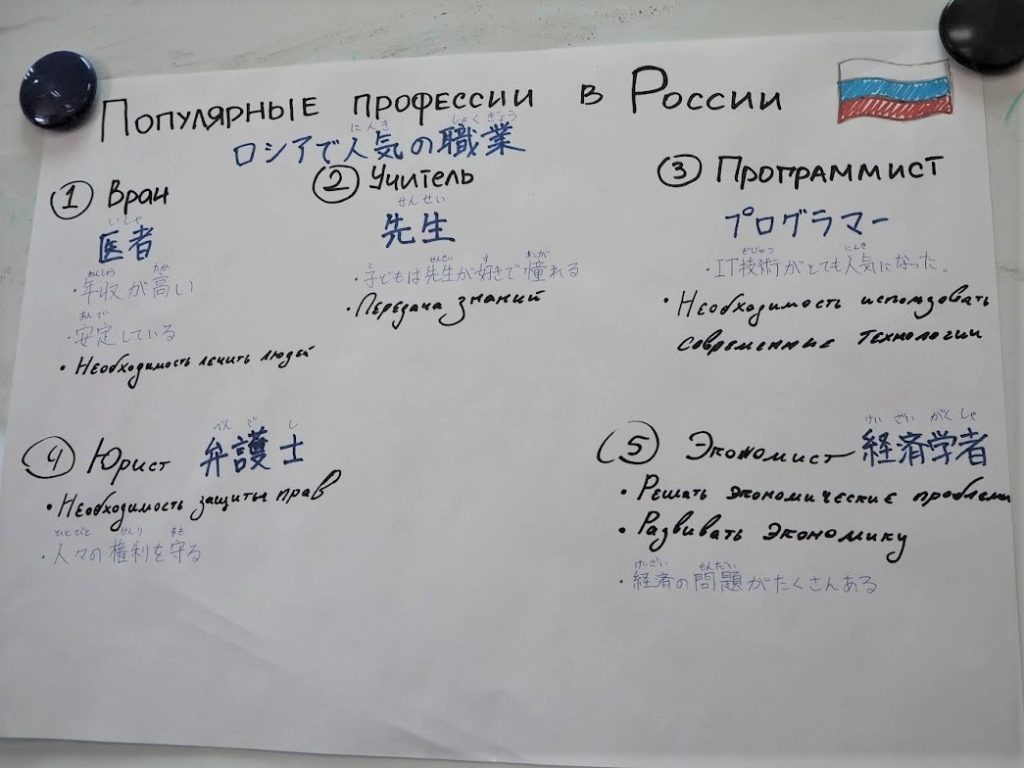 Популярные профессии в России
にんき しょくぎょう
ロシアで人気の職業
① Врач
いしゃ
医者
ねんしゅう たか
・年収が高い
あんてい
・安定している
• Необходимость лечить людей
② Учитель
せんせい
先生
せんせい す あこが
・子どもは先生が好きで憧れる
• Передача знаний
③ Программист
プログラマー
ぎじゅつ にんき
・IT技術がとても人気になった。
• Необходимость использовать
современные технологии
④ Юрист 弁護士
べんごし
• Необходимость защиты прав
ひとびと けんり まも
・人々の権利を守る
⑤ Экономист 経済学者
けいざいがくしゃ
• Решать экономические проблемы
• Развивать экономику
けいざい もんだい
・経済の問題がたくさんある